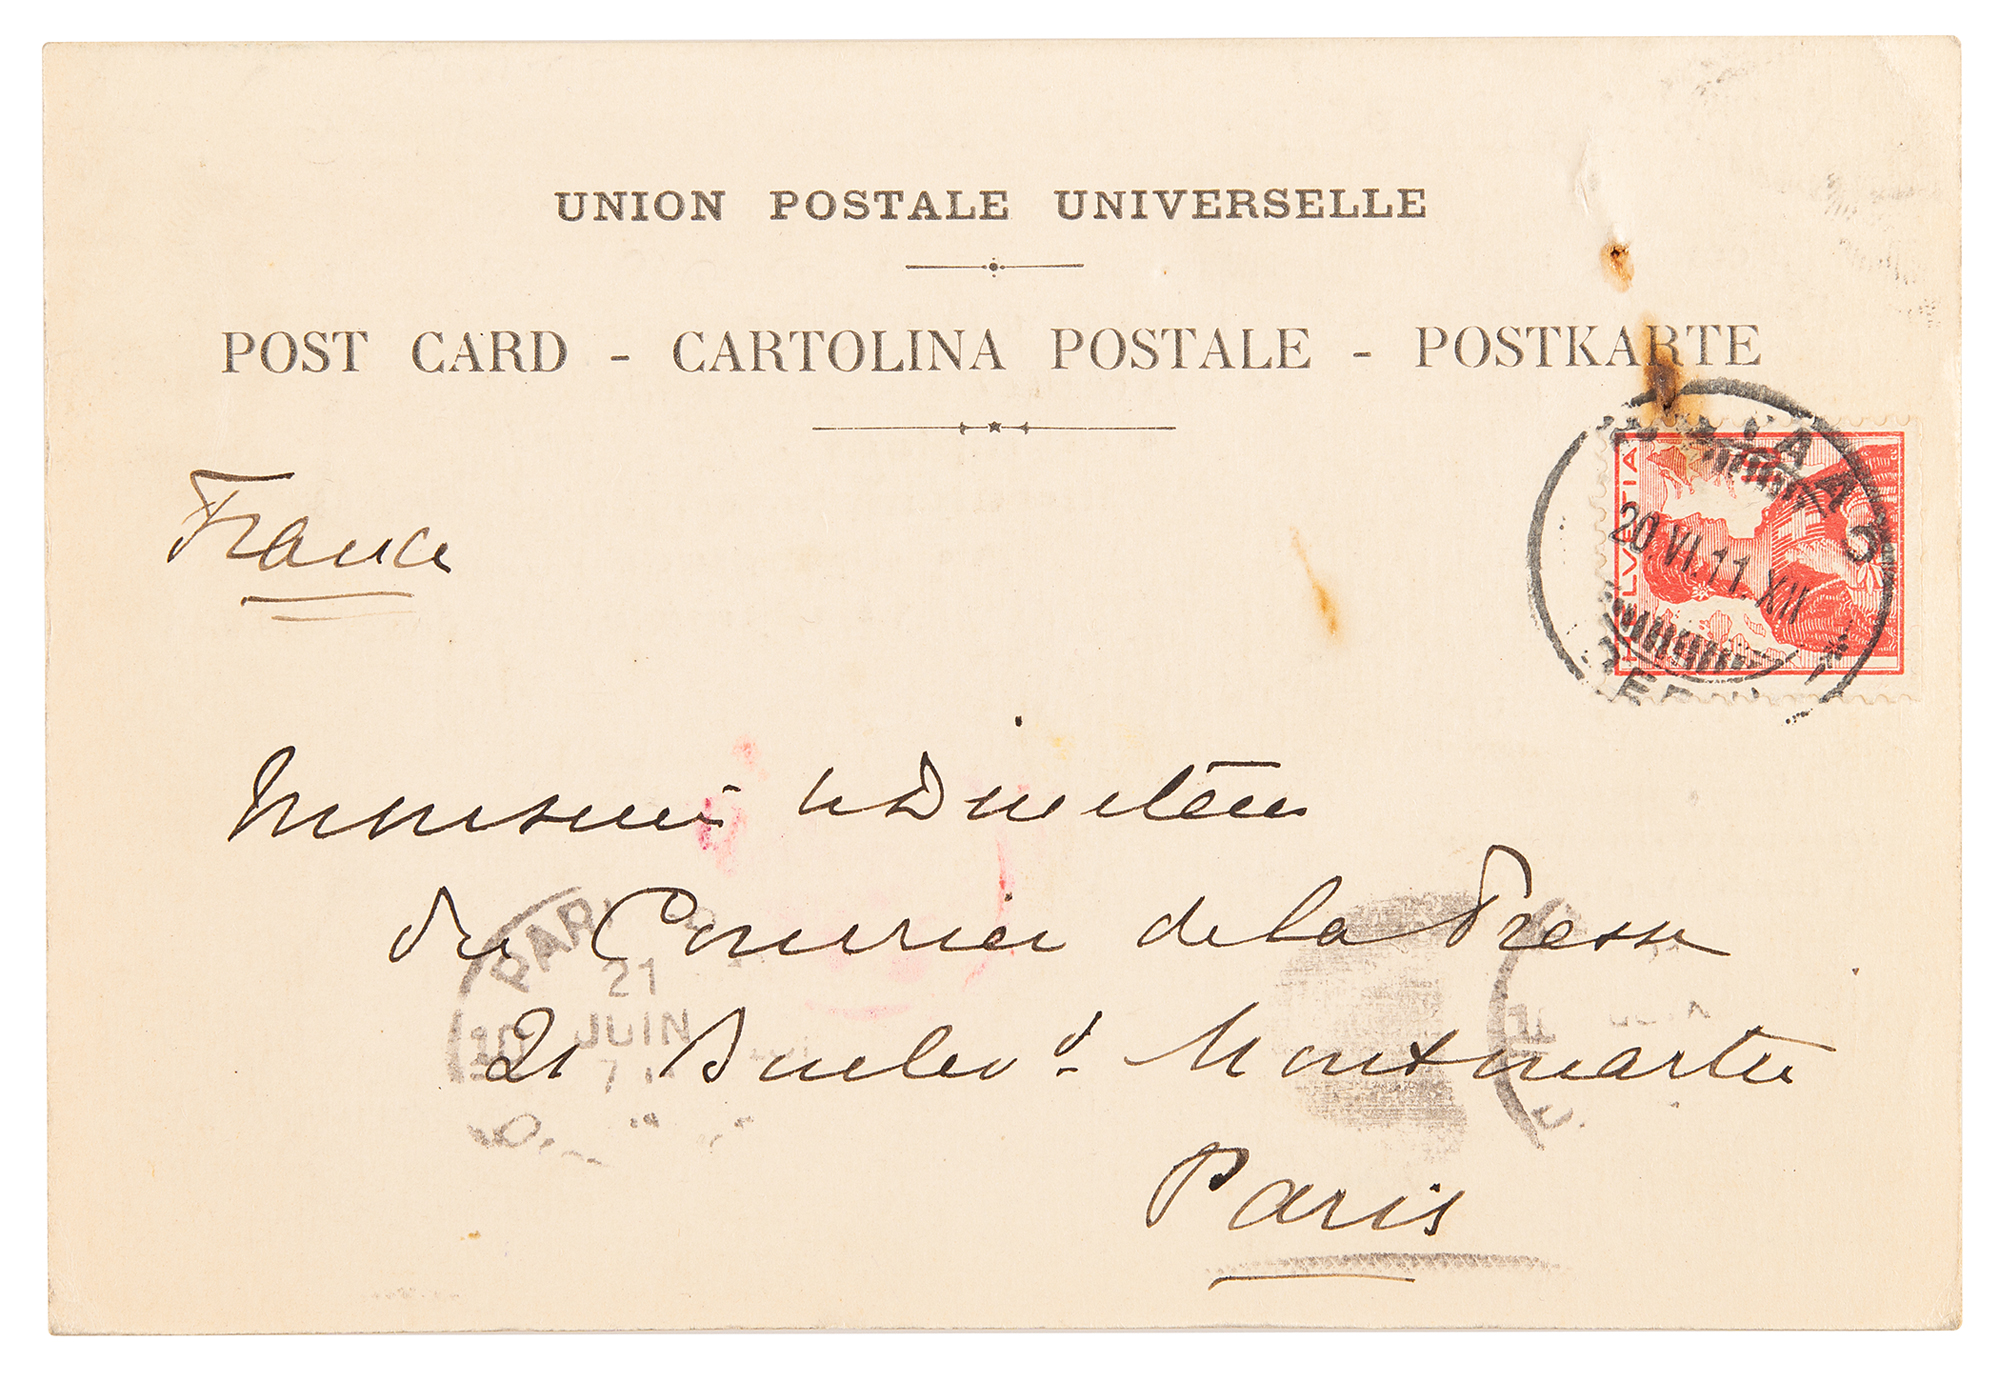 UNION POSTALE UNIVERSELLE
POST CARD - CARTOLINA POSTALE - POSTKARTE
France
HELVETIA
20.VI.11.XII
Monsieur le Directeur
du Courrier de la Presse
21 Boulevd Montmartre
Paris
PARI
21
10 JUIN
7
JUIN